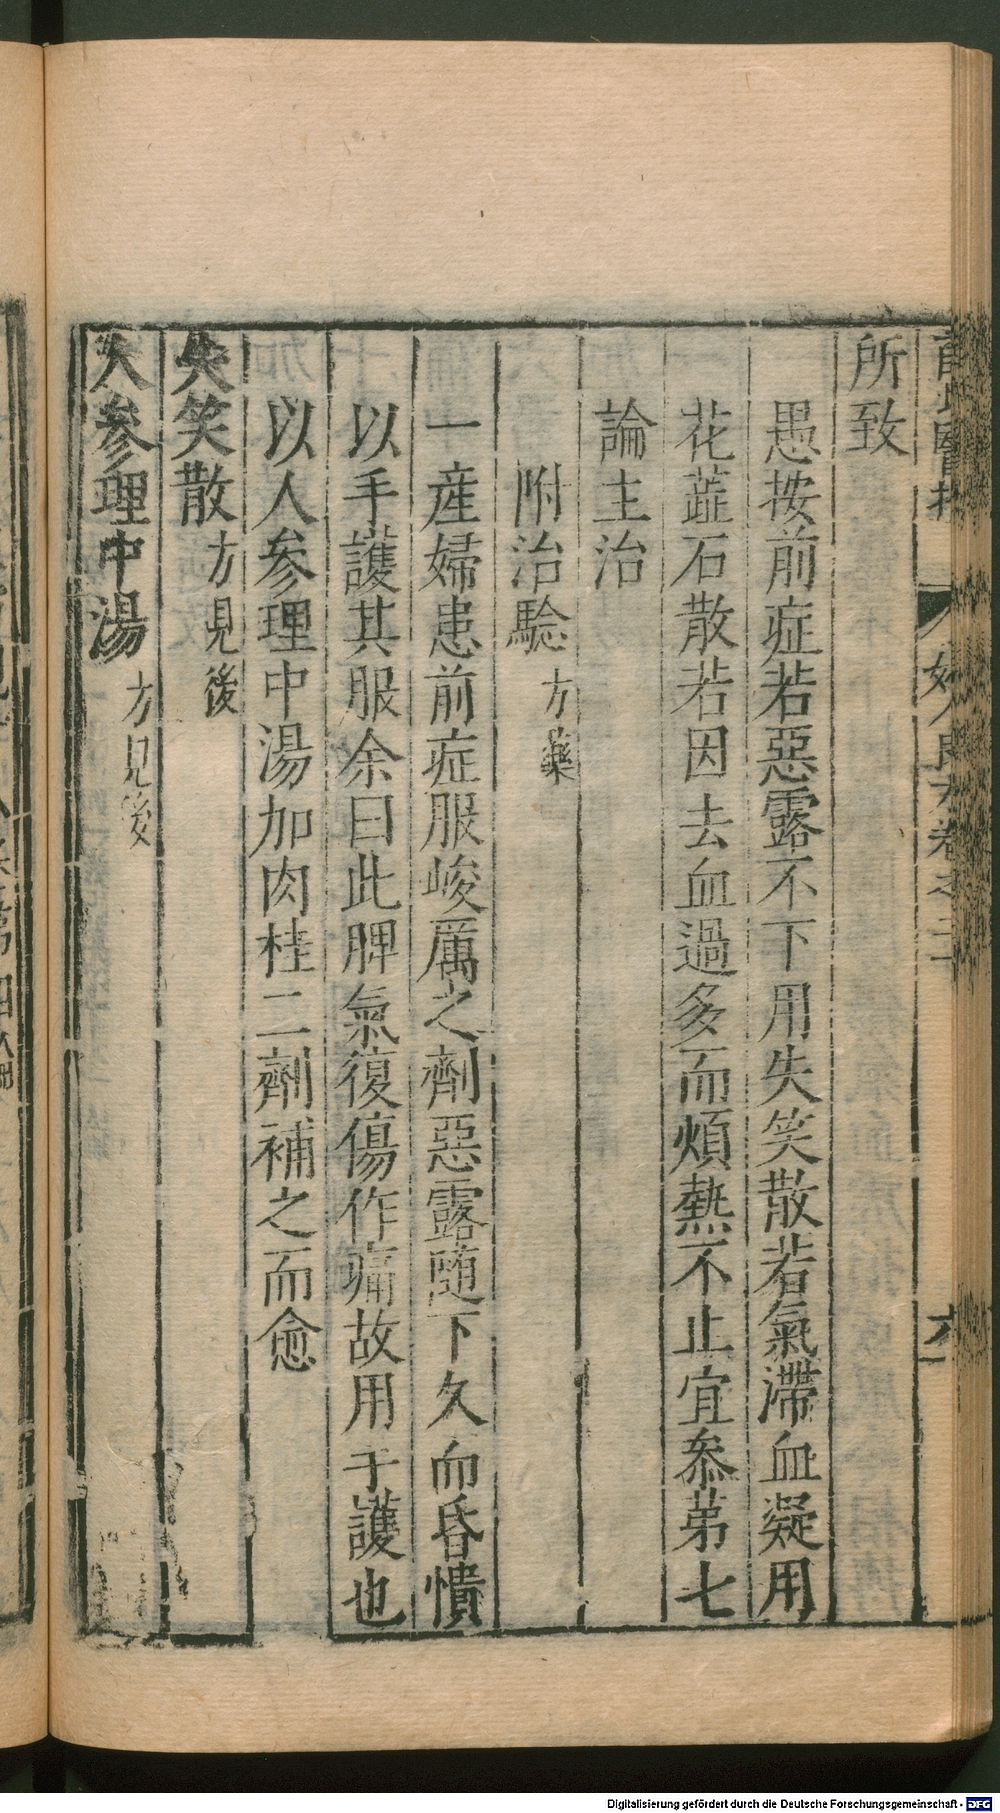 所致
愚按前症若惡露不下用失笑散若氣滯血凝用
花蕋石散若因去血過多而煩熱不止宜叅第七
論主治
附治驗方藥
一產婦患前症服峻厲之劑惡露隨下久而昏憒
以手護其服余曰此脾氣復傷作痛故用手護也
以人參理中湯加肉桂二劑補之而愈
失笑散方見後
人參理中湯方見後
Digitalisierung gefördert durch die Deutsche Forschungsgemeinschaft - DFG